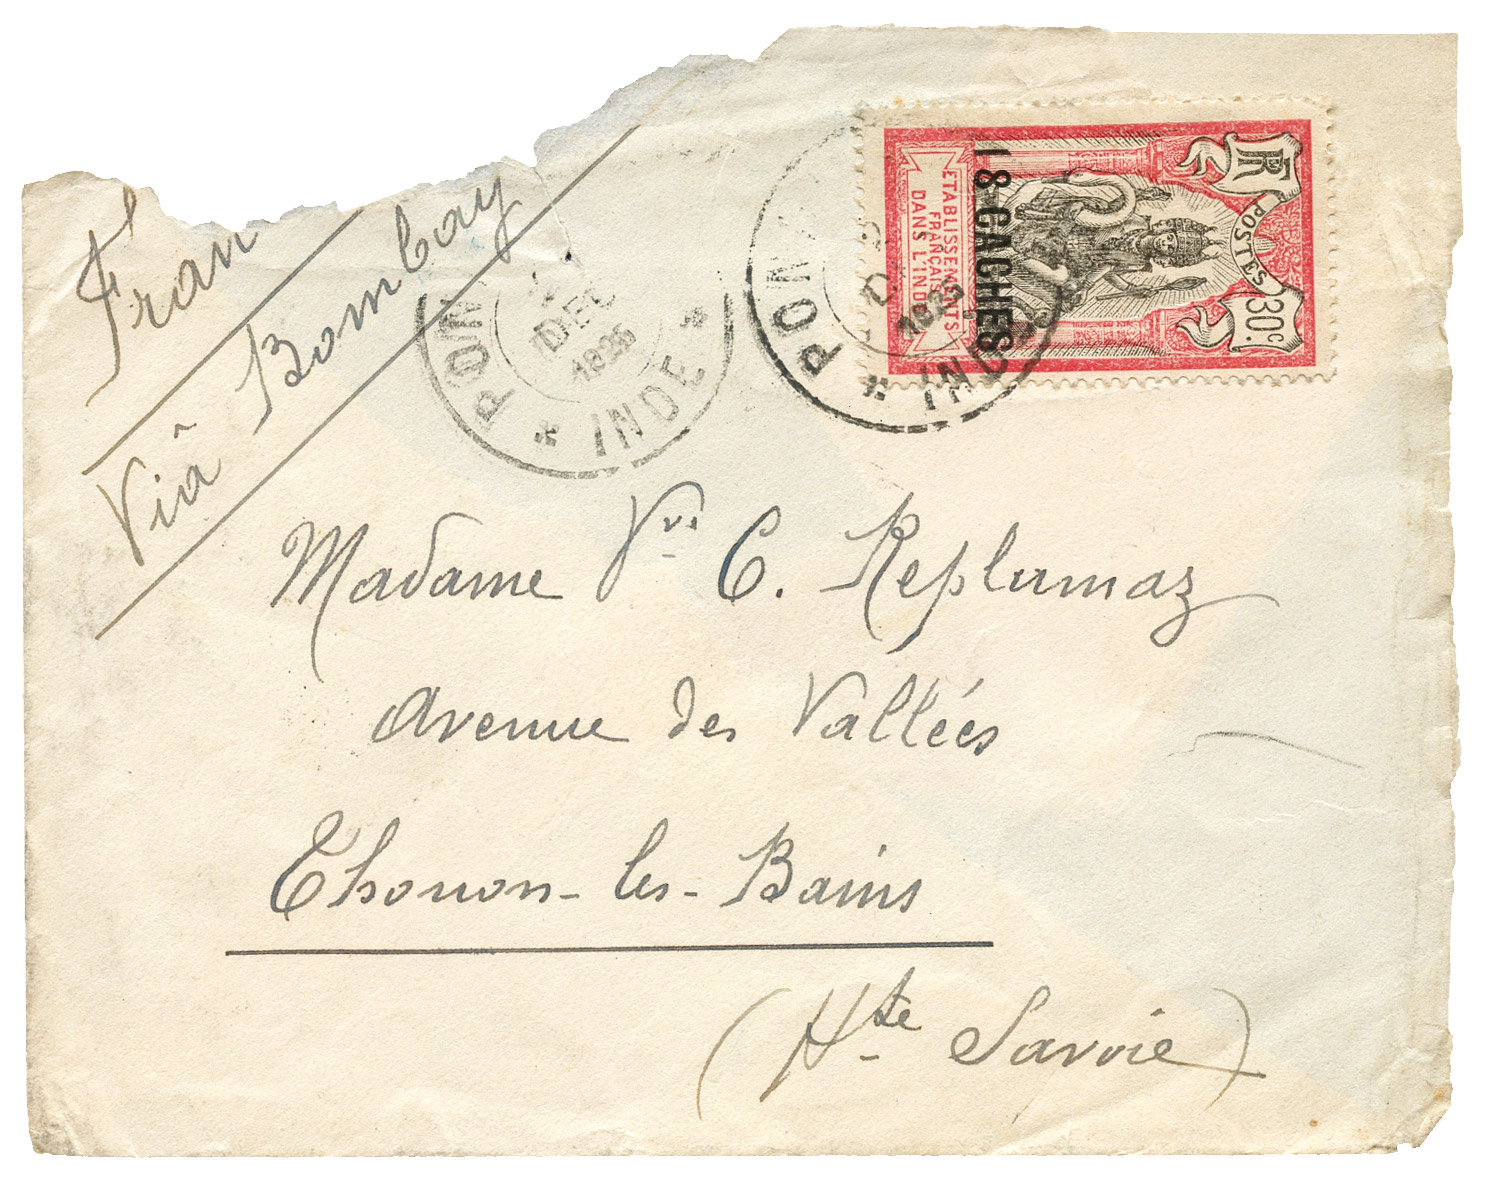 Fran
Viâ Bombay
PON
DEC
1925
* INDE *
PON
INDE
RF
POSTES
30c.
ETABLISSEMENTS
FRANÇAIS
DANS L'INDE
18 CACHES
Madame Vve C. Replumaz
Avenue des Vallées
Thonon-les-Bains
(Hte Savoie)